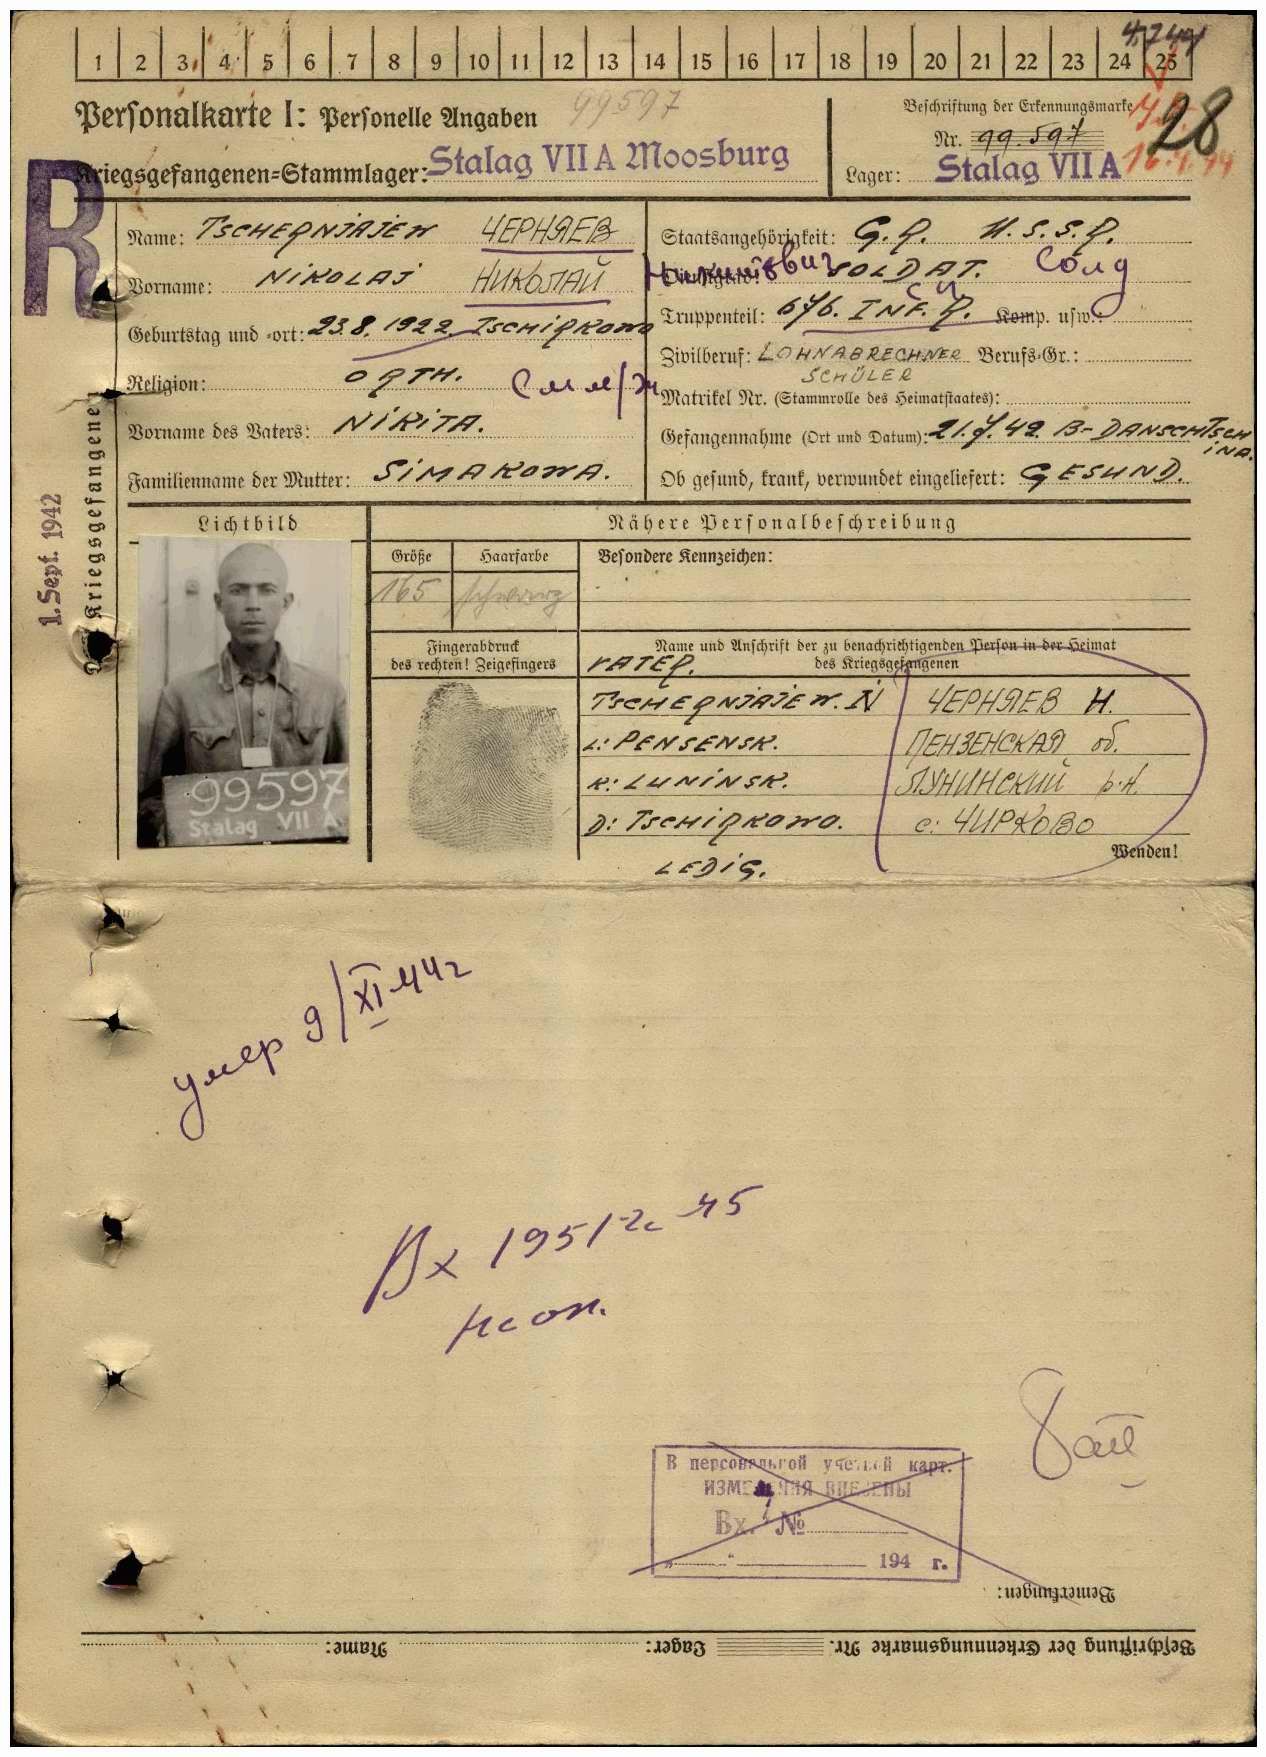 1 2 3 4 5 6 7 8 9 10 11 12 13 14 15 16 17 18 19 20 21 22 23 24 25
Personalkarte I: Personelle Angaben 99597
Beschriftung der Erkennungsmarke
Nr. 99.597
28
Kriegsgefangenen=Stammlager: Stalag VII A Moosburg
Lager: Stalag VII A
R
Name: TSCHERNJAJEW ЧЕРНЯЕВ
Vorname: NIKOLAJ НИКОЛАЙ Никитович
Geburtstag und -ort: 23.8.1922. TSCHIRKOWO
Religion: ORTH.
Vorname des Vaters: NIKITA.
Familienname der Mutter: SIMAKOWA.
Staatsangehörigkeit: G.R. U.S.S.R.
Dienstgrad: SOLDAT. Солд
Truppenteil: 676. INF. R. Komp. usw.:
Zivilberuf: LOHNABRECHNER Berufs-Gr.:
SCHÜLER
Matrikel Nr. (Stammrolle des Heimatstaates):
Gefangennahme (Ort und Datum): 21.7.42. B-DANSCHTSCHINA.
Ob gesund, krank, verwundet eingeliefert: GESUND.
1. Sept. 1942
Kriegsgefangene
Lichtbild
99597
Stalag VII A
Nähere Personalbeschreibung
Größe Haarfarbe Besondere Kennzeichen:
165 schwarz
Fingerabdruck
des rechten! Zeigefingers
Name und Anschrift der zu benachrichtigenden Person in der Heimat
des Kriegsgefangenen
VATER.
TSCHERNJAJEW. N ЧЕРНЯЕВ Н.
L: PENSENSK. ПЕНЗЕНСКАЯ об.
K: LUNINSK. ЛУНИНСКИЙ р-н.
D: TSCHIRKOWO. с: ЧИРКОВО
LEDIG.
Wenden!
умер 9/XI 44г
Вх 1951-2с 45
В персональной учетной карт.
ИЗМЕНЕНИЯ ВНЕСЕНЫ
Вх. №
„ “ 194 г.
Bemerkungen:
Beschriftung der Erkennungsmarke Nr. Lager: Name: